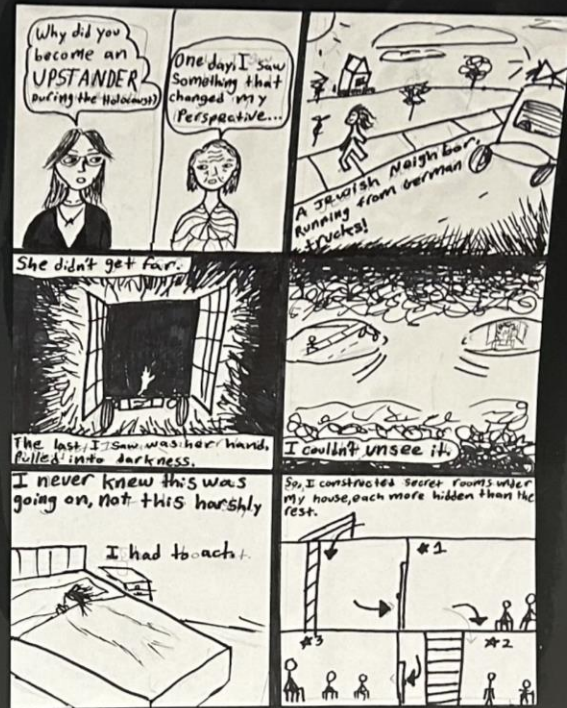 Why did you
become an
UPSTANDER
During the Holocaust?
One day, I saw
Something that
changed my
Perspective...
A Jewish Neighbor,
Running from German
trucks!
She didn't get far.
The last I saw was her hand,
Pulled into darkness.
I couldn't unsee it.
I never knew this was
going on, not this harshly
I had to act.
So, I constructed secret rooms under
my house, each more hidden than the
rest.
#1
#3
#2